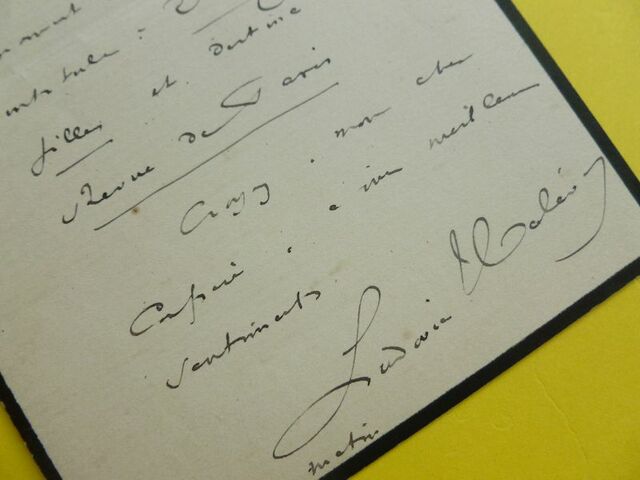 intitulé :
filles et destiné
Revue de Paris
Croyez, mon cher
confrère, à mes meilleurs
sentiments.
Ludovic Halévy
matin